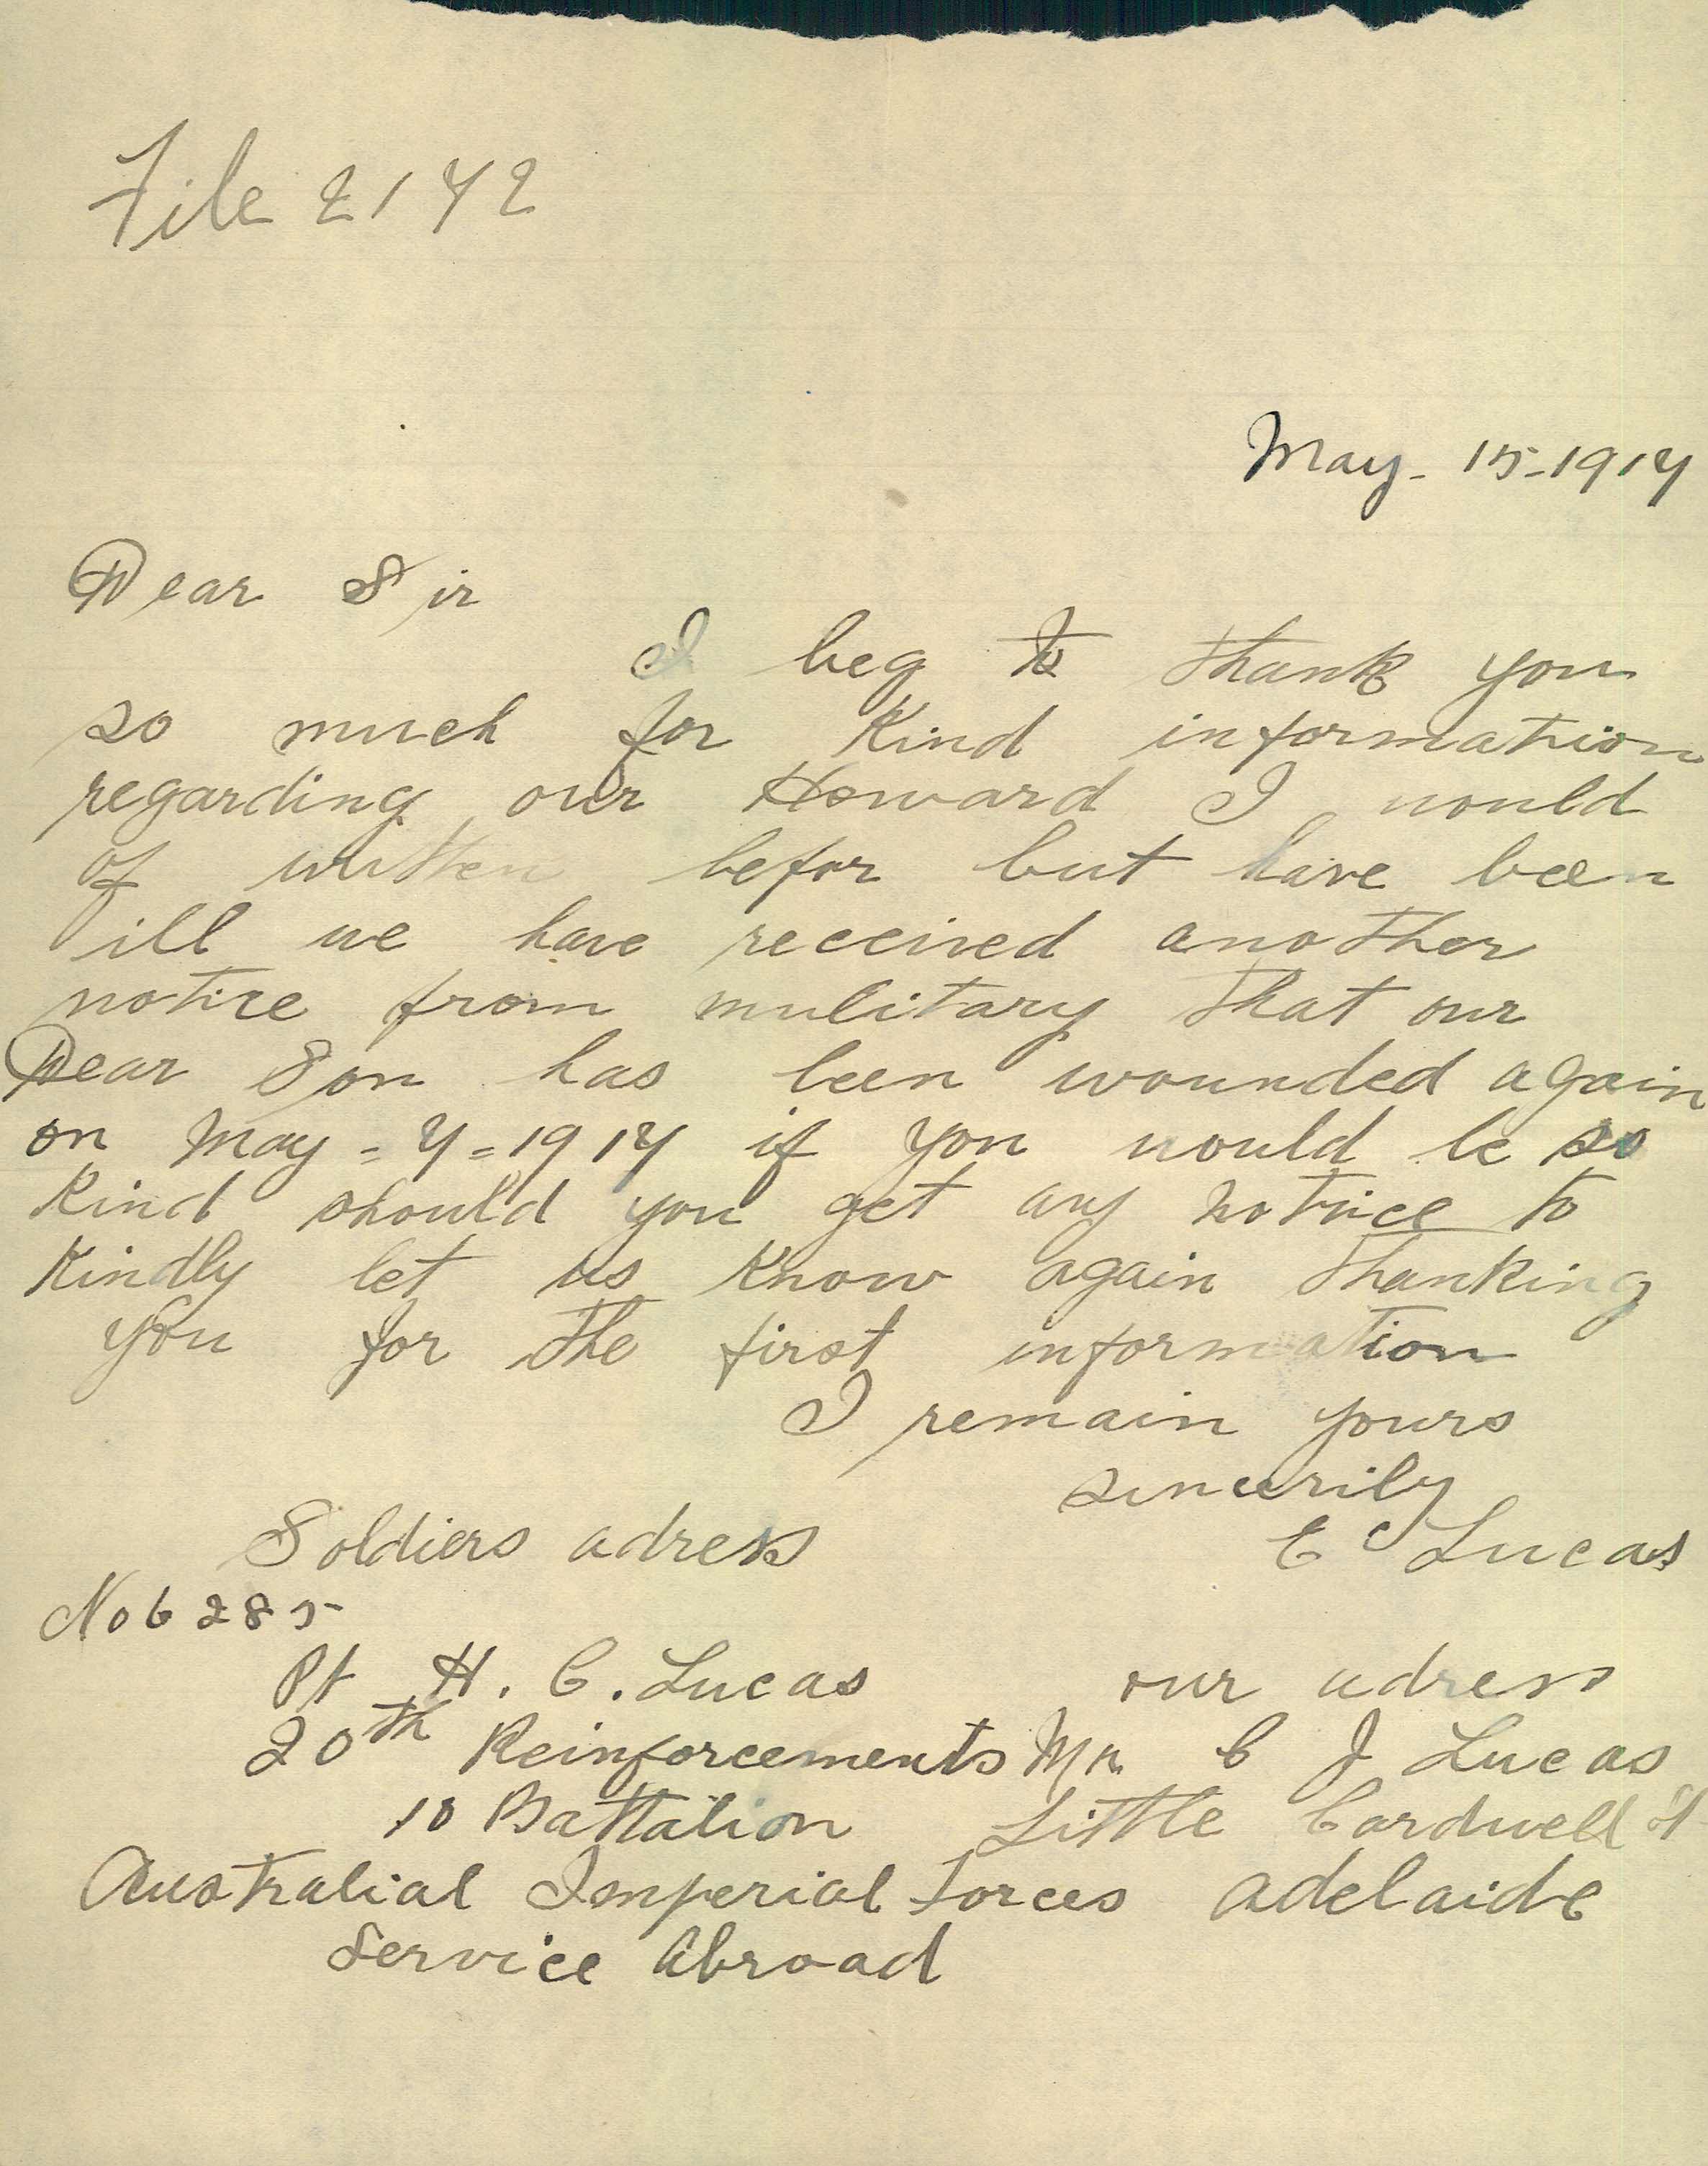 File 2172
May - 15 - 1917
Dear Sir
I beg to thank you
so much for Kind information
regarding our Howard I would
of written befor but have been
ill we have received another
notice from mulitary that our
Dear Son has been wounded again
on May = 7 = 1917 if you would be so
Kind should you get any notice to
Kindly let us Know again thanking
you for the first information
I remain yours
sincerily
E C Lucas
Soldiers adress
No 6285
Pt H. C. Lucas
20th Reinforcements
10 Battalion
Australial Imperial Forces
Service Abroad
our adress
Mr. C J Lucas
Little Cardwell St
Adelaide